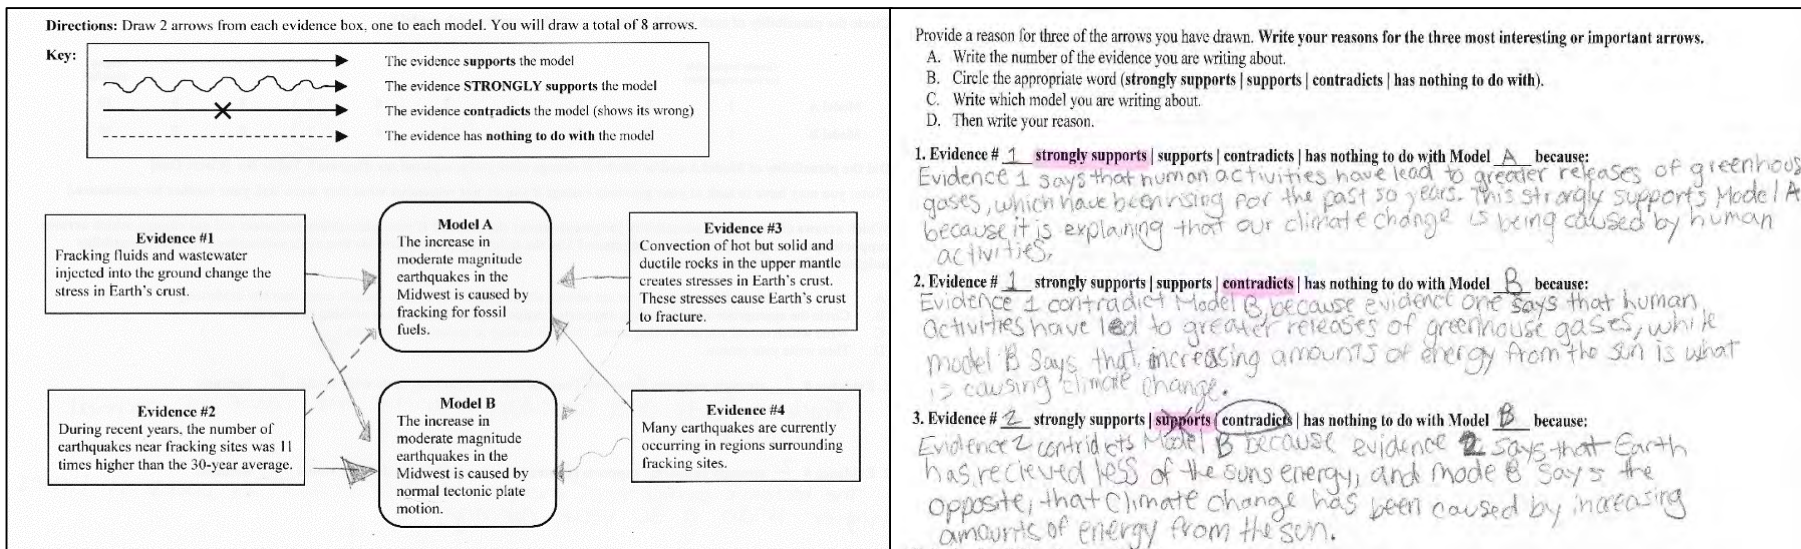 Directions: Draw 2 arrows from each evidence box, one to each model. You will draw a total of 8 arrows.
Key:
The evidence supports the model
The evidence STRONGLY supports the model
The evidence contradicts the model (shows its wrong)
The evidence has nothing to do with the model
Evidence #1
Fracking fluids and wastewater
injected into the ground change the
stress in Earth's crust.
Model A
The increase in
moderate magnitude
earthquakes in the
Midwest is caused by
fracking for fossil
fuels.
Evidence #3
Convection of hot but solid and
ductile rocks in the upper mantle
creates stresses in Earth's crust.
These stresses cause Earth's crust
to fracture.
Evidence #2
During recent years, the number of
earthquakes near fracking sites was 11
times higher than the 30-year average.
Model B
The increase in
moderate magnitude
earthquakes in the
Midwest is caused by
normal tectonic plate
motion.
Evidence #4
Many earthquakes are currently
occurring in regions surrounding
fracking sites.
Provide a reason for three of the arrows you have drawn. Write your reasons for the three most interesting or important arrows.
A. Write the number of the evidence you are writing about.
B. Circle the appropriate word (strongly supports | supports | contradicts | has nothing to do with).
C. Write which model you are writing about.
D. Then write your reason.
1. Evidence # 1 strongly supports | supports | contradicts | has nothing to do with Model A because:
Evidence 1 says that human activities have lead to greater releases of greenhous
gases, which have been rising for the past 50 years. This strongly supports Model A
because it is explaining that our climate change is being caused by human
activities.
2. Evidence # 1 strongly supports | supports | contradicts | has nothing to do with Model B because:
Evidence 1 contradict Model B, because evidence one says that human
activities have led to greater releases of greenhouse gases, while
model B says that, increasing amounts of energy from the sun is what
is causing climate change.
3. Evidence # 2 strongly supports | supports | contradicts | has nothing to do with Model B because:
Evidence 2 contridicts Model B because evidence 2 says that Earth
has recieved less of the suns energy, and mode B says the
opposite, that climate change has been caused by increasing
amounts of energy from the sun.